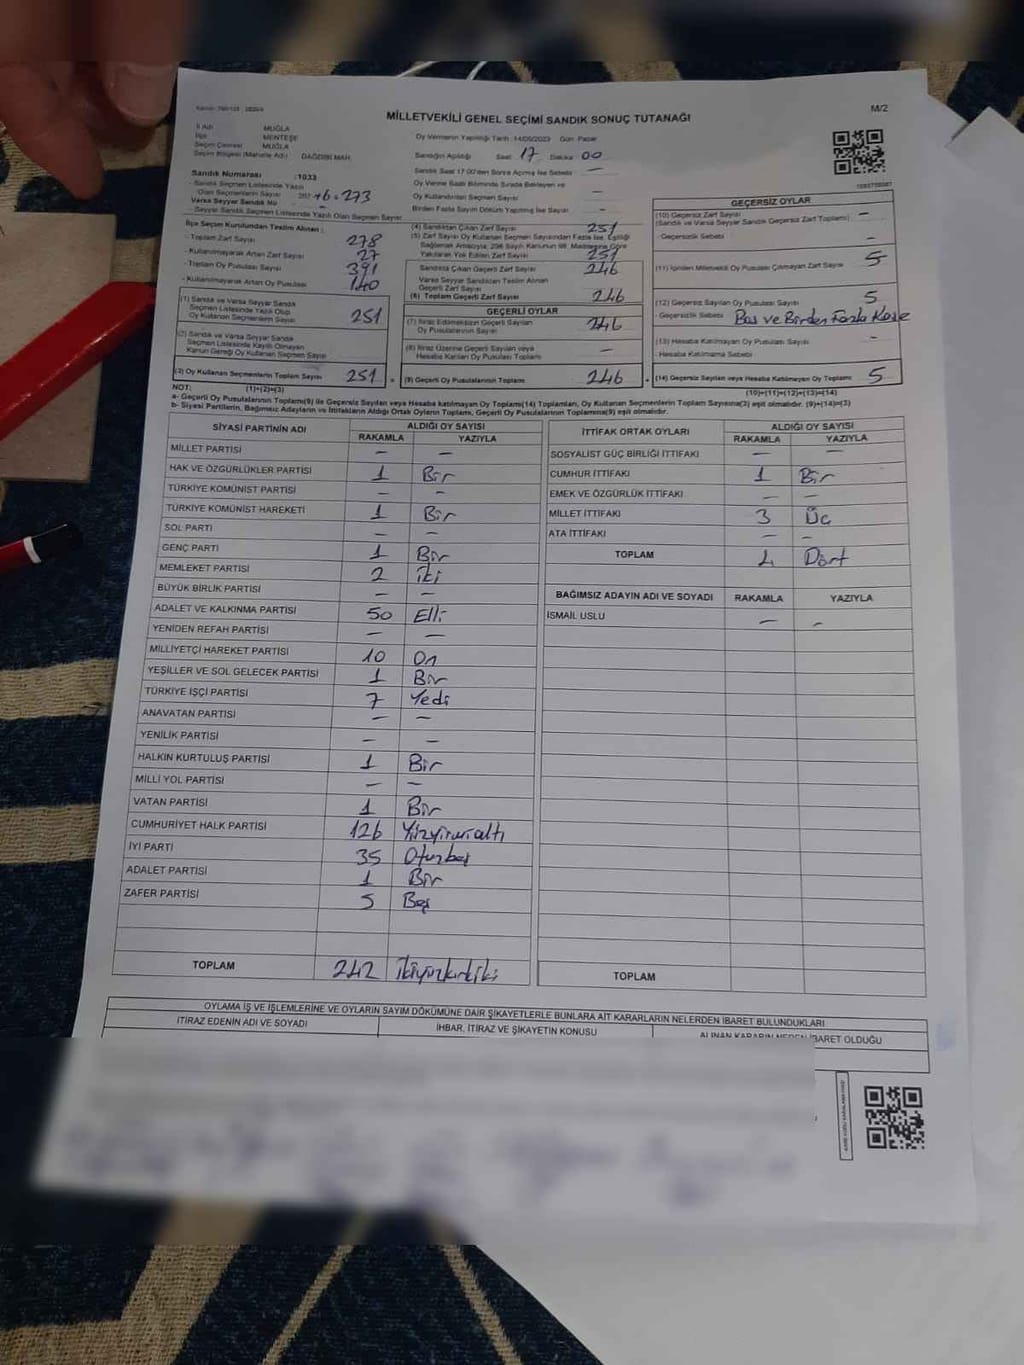 MİLLETVEKİLİ GENEL SEÇİMİ SANDIK SONUÇ TUTANAĞI
M/2
İl Adı MUĞLA
İlçe MENTEŞE
Seçim Çevresi MUĞLA
Seçim Bölgesi (Mahalle Adı) DAĞDİBİ MAH.
Sandık Numarası :1033
- Sandık Seçmen Listesinde Yazılı
Olan Seçmenlerin Sayısı 267 +6 = 273
Varsa Seyyar Sandık No
- Seyyar Sandık Seçmen Listesinde Yazılı Olan Seçmen Sayısı –
Oy Vermenin Yapıldığı Tarih :14/05/2023 Gün: Pazar
Sandığın Açıldığı Saat: 17 Dakika 00
Sandık Saat 17.00'den Sonra Açılmış İse Sebebi –
Oy Verme Saati Bitiminde Sırada Bekleyen ve
Oy Kullandırılan Seçmen Sayısı –
Birden Fazla Sayım Döküm Yapılmış İse Sayısı –
İlçe Seçim Kurulundan Teslim Alınan :
- Toplam Zarf Sayısı 278
- Kullanılmayarak Artan Zarf Sayısı 27
- Toplam Oy Pusulası Sayısı 391
- Kullanılmayarak Artan Oy Pusulası 140
(1) Sandık ve Varsa Seyyar Sandık
Seçmen Listesinde Yazılı Olup
Oy Kullanan Seçmenlerin Sayısı 251
(2) Sandık ve Varsa Seyyar Sandık
Seçmen Listesinde Kayıtlı Olmayan
Kanun Gereği Oy Kullanan Seçmen Sayısı
(3) Oy Kullanan Seçmenlerin Toplam Sayısı 251
(1)+(2)=(3)
(4) Sandıktan Çıkan Zarf Sayısı 251
(5) Zarf Sayısı Oy Kullanan Seçmen Sayısından Fazla İse, Eşitliği
Sağlamak Amacıyla; 298 Sayılı Kanunun 98. Maddesine Göre
Yakılarak Yok Edilen Zarf Sayısı 251
Sandıkta Çıkan Geçerli Zarf Sayısı 246
Varsa Seyyar Sandıktan Teslim Alınan
Geçerli Zarf Sayısı
(6) Toplam Geçerli Zarf Sayısı 246
GEÇERLİ OYLAR
(7) İtiraz Edilmeksizin Geçerli Sayılan
Oy Pusulalarının Sayısı 246
(8) İtiraz Üzerine Geçerli Sayılan veya
Hesaba Katılan Oy Pusulası Toplamı –
(9) Geçerli Oy Pusulalarının Toplamı 246
GEÇERSİZ OYLAR
(10) Geçersiz Zarf Sayısı
(Sandık ve Varsa Seyyar Sandık Geçersiz Zarf Toplamı) –
- Geçersizlik Sebebi –
(11) İçinden Milletvekili Oy Pusulası Çıkmayan Zarf Sayısı 5
(12) Geçersiz Sayılan Oy Pusulası Sayısı 5
- Geçersizlik Sebebi Boş ve Birden Fazla Kaşe
(13) Hesaba Katılmayan Oy Pusulası Sayısı –
- Hesaba Katılmama Sebebi –
(14) Geçersiz Sayılan veya Hesaba Katılmayan Oy Toplamı 5
(10)+(11)+(12)+(13)=(14)
NOT:
a- Geçerli Oy Pusulalarının Toplamı(9) ile Geçersiz Sayılan veya Hesaba katılmayan Oy Toplamı(14) Toplamları, Oy Kullanan Seçmenlerin Toplam Sayısına(3) eşit olmalıdır. (9)+(14)=(3)
b- Siyasi Partilerin, Bağımsız Adayların ve İttifakların Aldığı Ortak Oyların Toplamı, Geçerli Oy Pusulalarının Toplamına(9) eşit olmalıdır.
SİYASİ PARTİNİN ADI ALDIĞI OY SAYISI
RAKAMLA YAZIYLA
MİLLET PARTİSİ – –
HAK VE ÖZGÜRLÜKLER PARTİSİ 1 Bir
TÜRKİYE KOMÜNİST PARTİSİ – –
TÜRKİYE KOMÜNİST HAREKETİ 1 Bir
SOL PARTİ – –
GENÇ PARTİ 1 Bir
MEMLEKET PARTİSİ 2 iki
BÜYÜK BİRLİK PARTİSİ – –
ADALET VE KALKINMA PARTİSİ 50 Elli
YENİDEN REFAH PARTİSİ – –
MİLLİYETÇİ HAREKET PARTİSİ 10 On
YEŞİLLER VE SOL GELECEK PARTİSİ 1 Bir
TÜRKİYE İŞÇİ PARTİSİ 7 Yedi
ANAVATAN PARTİSİ – –
YENİLİK PARTİSİ – –
HALKIN KURTULUŞ PARTİSİ 1 Bir
MİLLİ YOL PARTİSİ – –
VATAN PARTİSİ 1 Bir
CUMHURİYET HALK PARTİSİ 126 Yüzyirmialtı
İYİ PARTİ 35 Otuzbeş
ADALET PARTİSİ 1 Bir
ZAFER PARTİSİ 5 Beş
TOPLAM 242 ikiyüzkırkiki
İTTİFAK ORTAK OYLARI ALDIĞI OY SAYISI
RAKAMLA YAZIYLA
SOSYALİST GÜÇ BİRLİĞİ İTTİFAKI – –
CUMHUR İTTİFAKI 1 Bir
EMEK VE ÖZGÜRLÜK İTTİFAKI – –
MİLLET İTTİFAKI 3 Üç
ATA İTTİFAKI – –
TOPLAM 4 Dört
BAĞIMSIZ ADAYIN ADI VE SOYADI RAKAMLA YAZIYLA
İSMAİL USLU – –
TOPLAM
OYLAMA İŞ VE İŞLEMLERİNE VE OYLARIN SAYIM DÖKÜMÜNE DAİR ŞİKAYETLERLE BUNLARA AİT KARARLARIN NELERDEN İBARET BULUNDUKLARI
İTİRAZ EDENİN ADI VE SOYADI İHBAR, İTİRAZ VE ŞİKAYETİN KONUSU ALINAN KARARIN NEDEN İBARET OLDUĞU